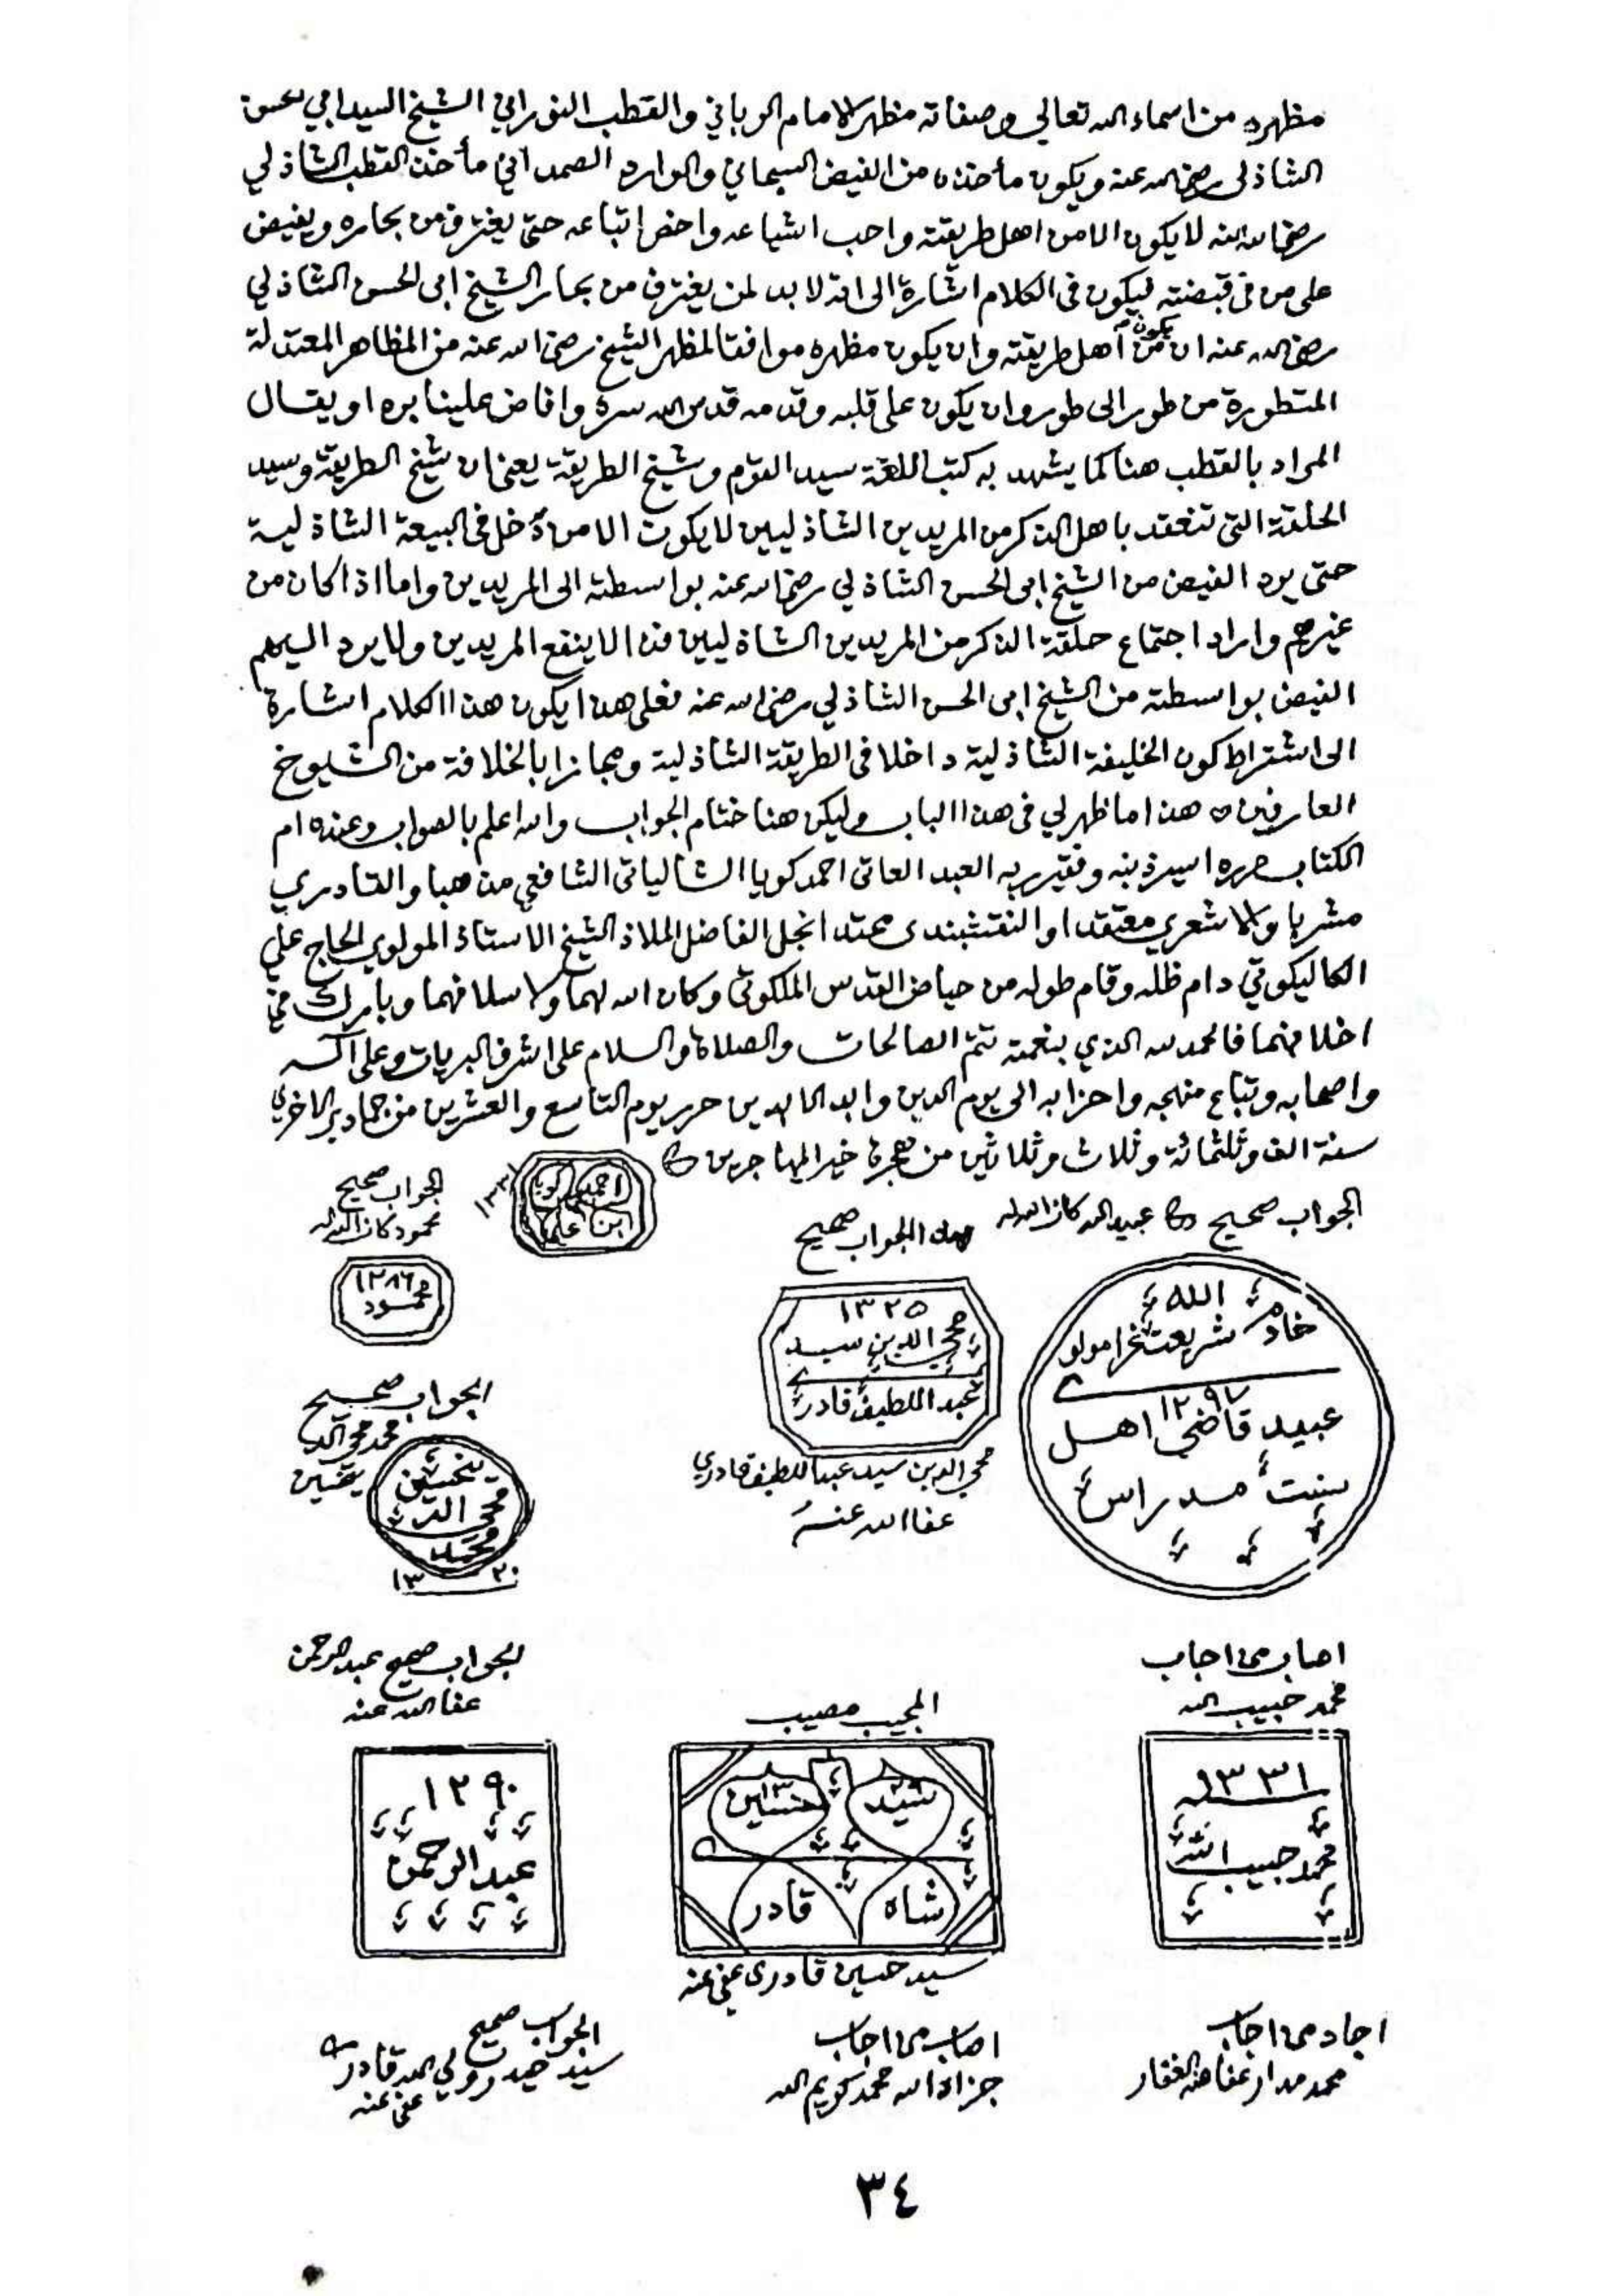 مظهره من اسماء الله تعالي وصفاته مظهر الامام الرباني والقطب النوراني الشيخ السيد ابي الحسن
الشاذلى رضي الله عنه ويكون مأخذه من الفيض السبحاني والوارد الصمداني مأخذ القطب الشاذلي
رضي الله عنه لا يكون الا من اهل طريقته واحب اشياعه واخص اتباعه حتى يغترف من بحاره ويفيض
على من فى قبضته فيكون فى الكلام اشارة الى انه لا بد لمن يغترف من بحار الشيخ ابى الحسن الشاذلي
رضي الله عنه ان يكون من أهل طريقته وان يكون مظهره موافقا لمظهر الشيخ رضي الله عنه من المظاهر المعتدلة
المتطورة من طور الى طور وان يكون على قلبه وقدمه قدس الله سره وافاض علينا بره او يقال
المراد بالقطب هنا كما يشهد به كتب اللغة سيد القوم وشيخ الطريقة يعني ان شيخ الطريقة وسيد
الحلقة التى تنعقد باهل الذكر من المريدين الشاذليين لا يكون الا من دخل فى البيعة الشاذلية
حتى يرد الفيض من الشيخ ابى الحسن الشاذلي رضي الله عنه بواسطته الى المريدين واما اذا كان من
غيرهم واراد اجتماع حلقة الذكر من المريدين الشاذليين فذا لا ينفع المريدين ولا يرد اليهم
الفيض بواسطته من الشيخ ابى الحسن الشاذلي رضي الله عنه فعلى هذا يكون هذا الكلام اشارة
الى اشتراط كون الخليفة الشاذلية داخلا فى الطريقة الشاذلية ومجازا بالخلافة من الشيوخ
العارفين هذا ما ظهر لي فى هذا الباب وليكن هنا ختام الجواب والله اعلم بالصواب وعنده ام
الكتاب حرره اسير ذنبه وفقير ربه العبد العاتى احمد كويا الشالياتى الشافعي مذهبا والقادري
مشربا والاشعري معتقدا والنقشبندى محتدا نجل الفاضل الملاذ الشيخ الاستاذ المولوي الحاج علي
الكاليكوتي دام ظله وقام طوله من حياض القدس الملكوتى وكان الله لهما ولاسلافهما وبارك في
اخلافهما فالحمد لله الذي بنعمته تتم الصالحات والصلاة والسلام على اشرف البريات وعلى اله
واصحابه وتباع منهجه واحزابه الى يوم الدين وابد الابدين حرر يوم التاسع والعشرين من جمادى الاخرى
سنة الف وثلثمائة وثلاث وثلاثين من هجرة خير المهاجرين
احمد كويا
ابن علي
١٣٣١
الجواب صحيح
محمود كان الله له
١٢٨٦
محمود
الجواب صحيح عبيد الله كان الله له
هذا الجواب صحيح
الله
خادم شريعت غرا مولوى
١٢٩٧
عبيد قاضي اهل
سنت مدراس
١٣٢٥
محي الدين سيد
عبد اللطيف قادرى
محي الدين سيد عبد اللطيف قادري
عفا الله عنه
الجواب صحيح
محمد محي الدين
محي الدين
محمد
١٣٢٠
اصاب من اجاب
محمد حبيب الله
١٣٣١
محمد حبيب الله
المجيب مصيب
سيد حسين
شاه قادر
سيد حسين قادرى عفي عنه
الجواب صحيح عبد الرحمن
عفا الله عنه
١٢٩٠
عبد الرحمن
اجاد من اجاب
محمد مدار عفا عنه الغفار
اصاب من اجاب
جزاه الله محمد كريم الله
الجواب صحيح
سيد حيدر ولي الله قادري
عفي عنه
٣٤